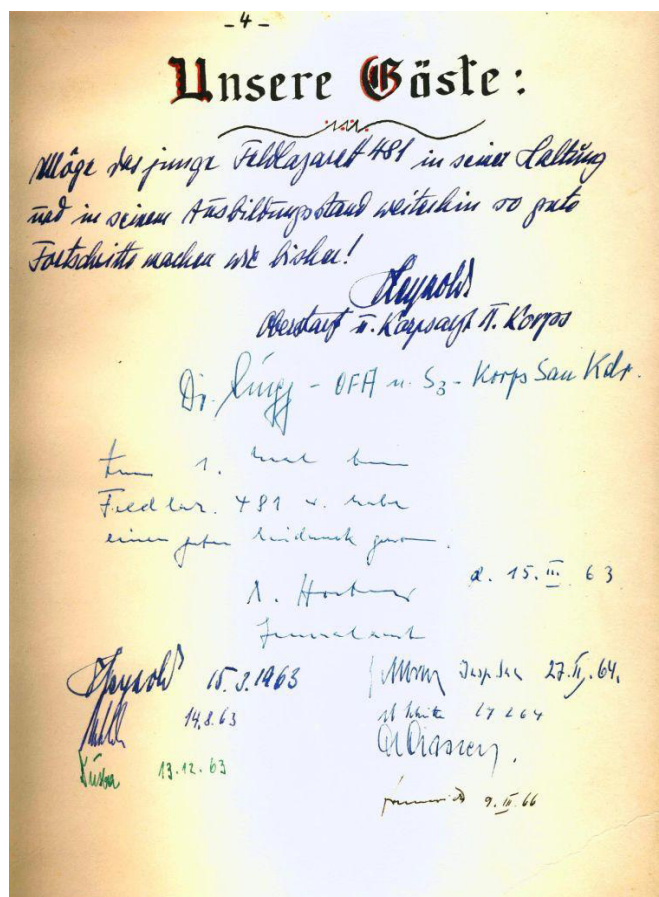 -4-
Unsere Gäste:
Möge das junge Feldlazarett 481 in seiner Haltung
und in seinem Ausbildungsstand weiterhin so gute
Fortschritte machen wie bisher!
Oberstarzt u. Korpsarzt II. Korps
Dr. - OFA u. S3 - Korps San Kdr.
Zum 1. Mal beim
Feldlaz. 481 u. habe
einen guten Eindruck gew.
d. 15. III. 63
Generalarzt
15.3.1963
Insp San 27. II. 64.
14.8.63
27 2 64
13.12.63
9. III. 66